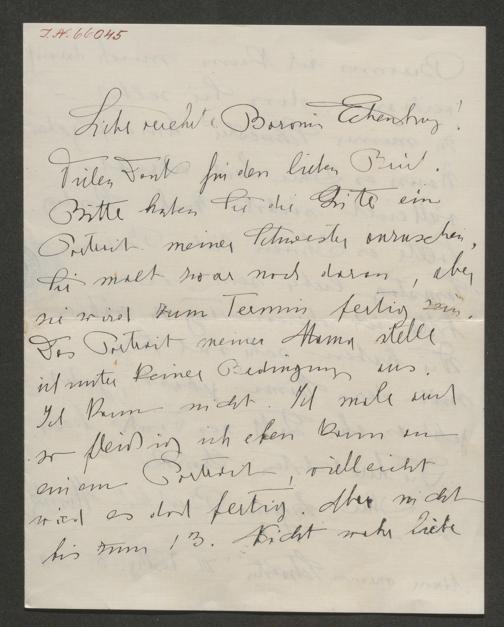 J.N. 66045
Liebe verehrte Baronin Eschenburg!
Vielen Dank für den lieben Brief.
Bitte haben Sie die Güte ein
Portrait meiner Schwester anzusehen,
sie malt zwar noch daran, aber
sie wird zum Termin fertig sein.
Das Portrait meiner Mama stelle
ich unter keiner Bedingung aus.
Ich kann nicht. Ich male auch
so fleißig ich eben kann an
einem Portrait, vielleicht
wird es doch fertig. Aber nicht
bis zum 13. Nicht wahr liebe